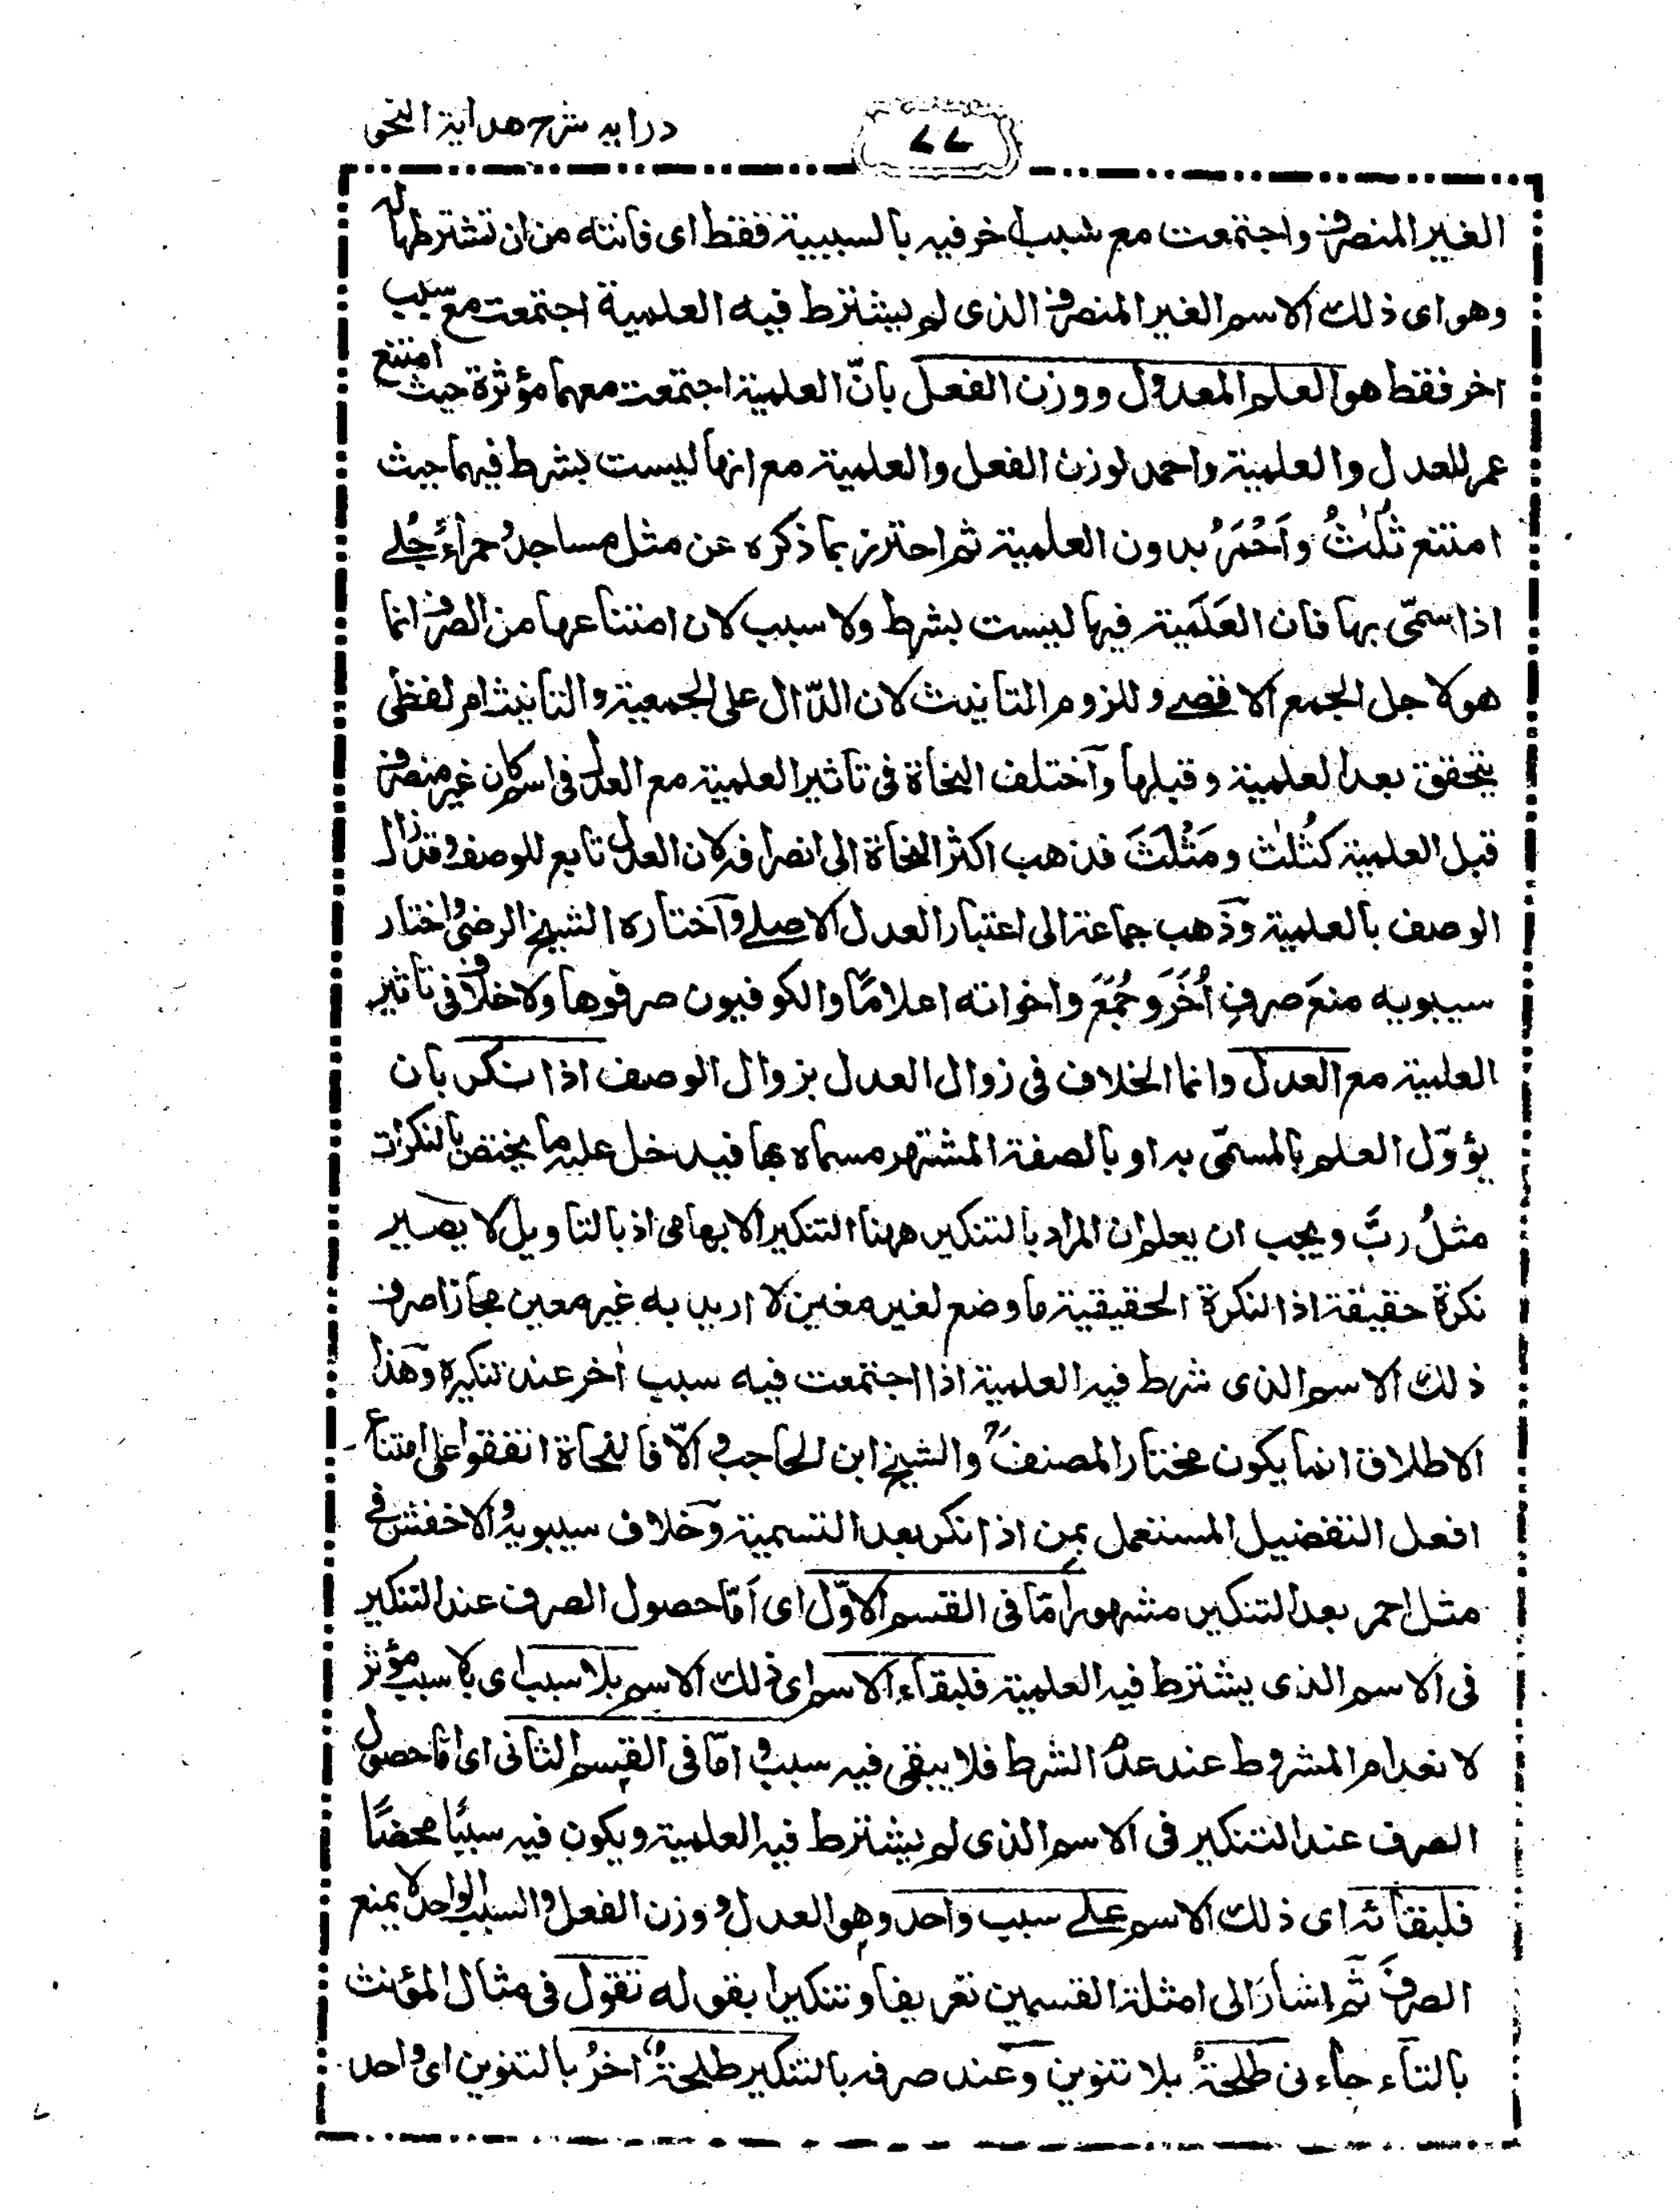 درايه شرح هداية النحو
٧٧
الغير المنصرف واجتمعت مع سبب اخر فيه بالسببية فقط اى فانته من ان تشترطها له
وهو اى ذلك الاسم الغير المنصرف الذى لم يشترط فيه العلمية اجتمعت مع سبب
اخر فقط هو العلم المعدول ووزن الفعل بانّ العلمية اجتمعت معهما مؤثرة حيث امتنع
عمر للعدل والعلمية واحمد لوزن الفعل والعلمية مع انها ليست بشرط فيهما حيث
امتنع ثُلٰثُ واَحْمَرُ بدون العلمية ثم احترز بما ذكره عن مثل مساجدُ وحمراءُ حُبلے
اذا سمّى بها فان العَلَمية فيها ليست بشرط ولا سبب لان امتناعها من الصرف انما
هو لاجل الجمع الاقصے وللزوم التانيث لان الدّال على الجمعية والتانيث امر لفظى
يتحقق بعد العلمية وقبلها واختلف النحاة فى تاثير العلمية مع العدل فى اسم كان غير منصرف
قبل العلمية كثُلٰث ومَثْلَثَ فذهب اكثر النحاة الى انصرافه لان العدل تابع للوصف وقد زال
الوصف بالعلمية وذهب جماعة الى اعتبار العدل الاصلے واختاره الشيخ الرضى واختار
سيبويه منعَ صرفِ اُخَرَ وجُمَعَ واخواته اعلامًا والكوفيون صرفوها ولا خلاف فى تاثير
العلمية مع العدل وانما الخلاف فى زوال العدل بزوال الوصف اذا نكر بان
يؤوّل العلم بالمسمّى به او بالصفة المشتهر مسماه بها فيدخل عليه ما يختص بالنكرات
مثلُ ربَّ ويجب ان يعلم ان المراد بالتنكير ههنا التنكير الابهامى اذ بالتاويل لا يصير
نكرة حقيقة اذ النكرة الحقيقية ما وضع لغير معين لا اريد به غير معين مجازا صرف
ذلك الاسم الذى شرط فيه العلمية اذا اجتمعت فيه سبب اٰخر عند تنكيره وهذا
الاطلاق انما يكون مختار المصنف والشيخ ابن الحاجب والّا فالنحاة اتفقوا على امتناع
افعل التفضيل المستعمل بمن اذا نكر بعد التسمية وخلاف سيبويه والاخفش فى
مثل احمر بعد التنكير مشهور امّا فى القسم الاوّل اى اَمّا حصول الصرف عند التنكير
فى الاسم الذى يشترط فيه العلمية فلبقاء الاسم اى ذلك الاسم بلا سبب اى بلا سبب مؤثر
لانعدام المشروط عند عدم الشرط فلا يبقى فيه سبب و امّا فى القسم الثانى اى امّا حصول
الصرف عند التنكير فى الاسم الذى لم يشترط فيه العلمية ويكون فيه سببًا محضًا
فلبقائه اى ذلك الاسم علے سبب واحد وهو العدل ووزن الفعل والسبب الواحد لا يمنع
الصرفَ ثم اشارَ الى امثلة القسمين تعريفا وتنكيرا بقوله تقول فى مثال المؤنث
بالتاء جاءنى طلحةُ بلا تنوين وعند صرفه بالتنكير طلحةٌ اخرُ بالتنوين اى واحد